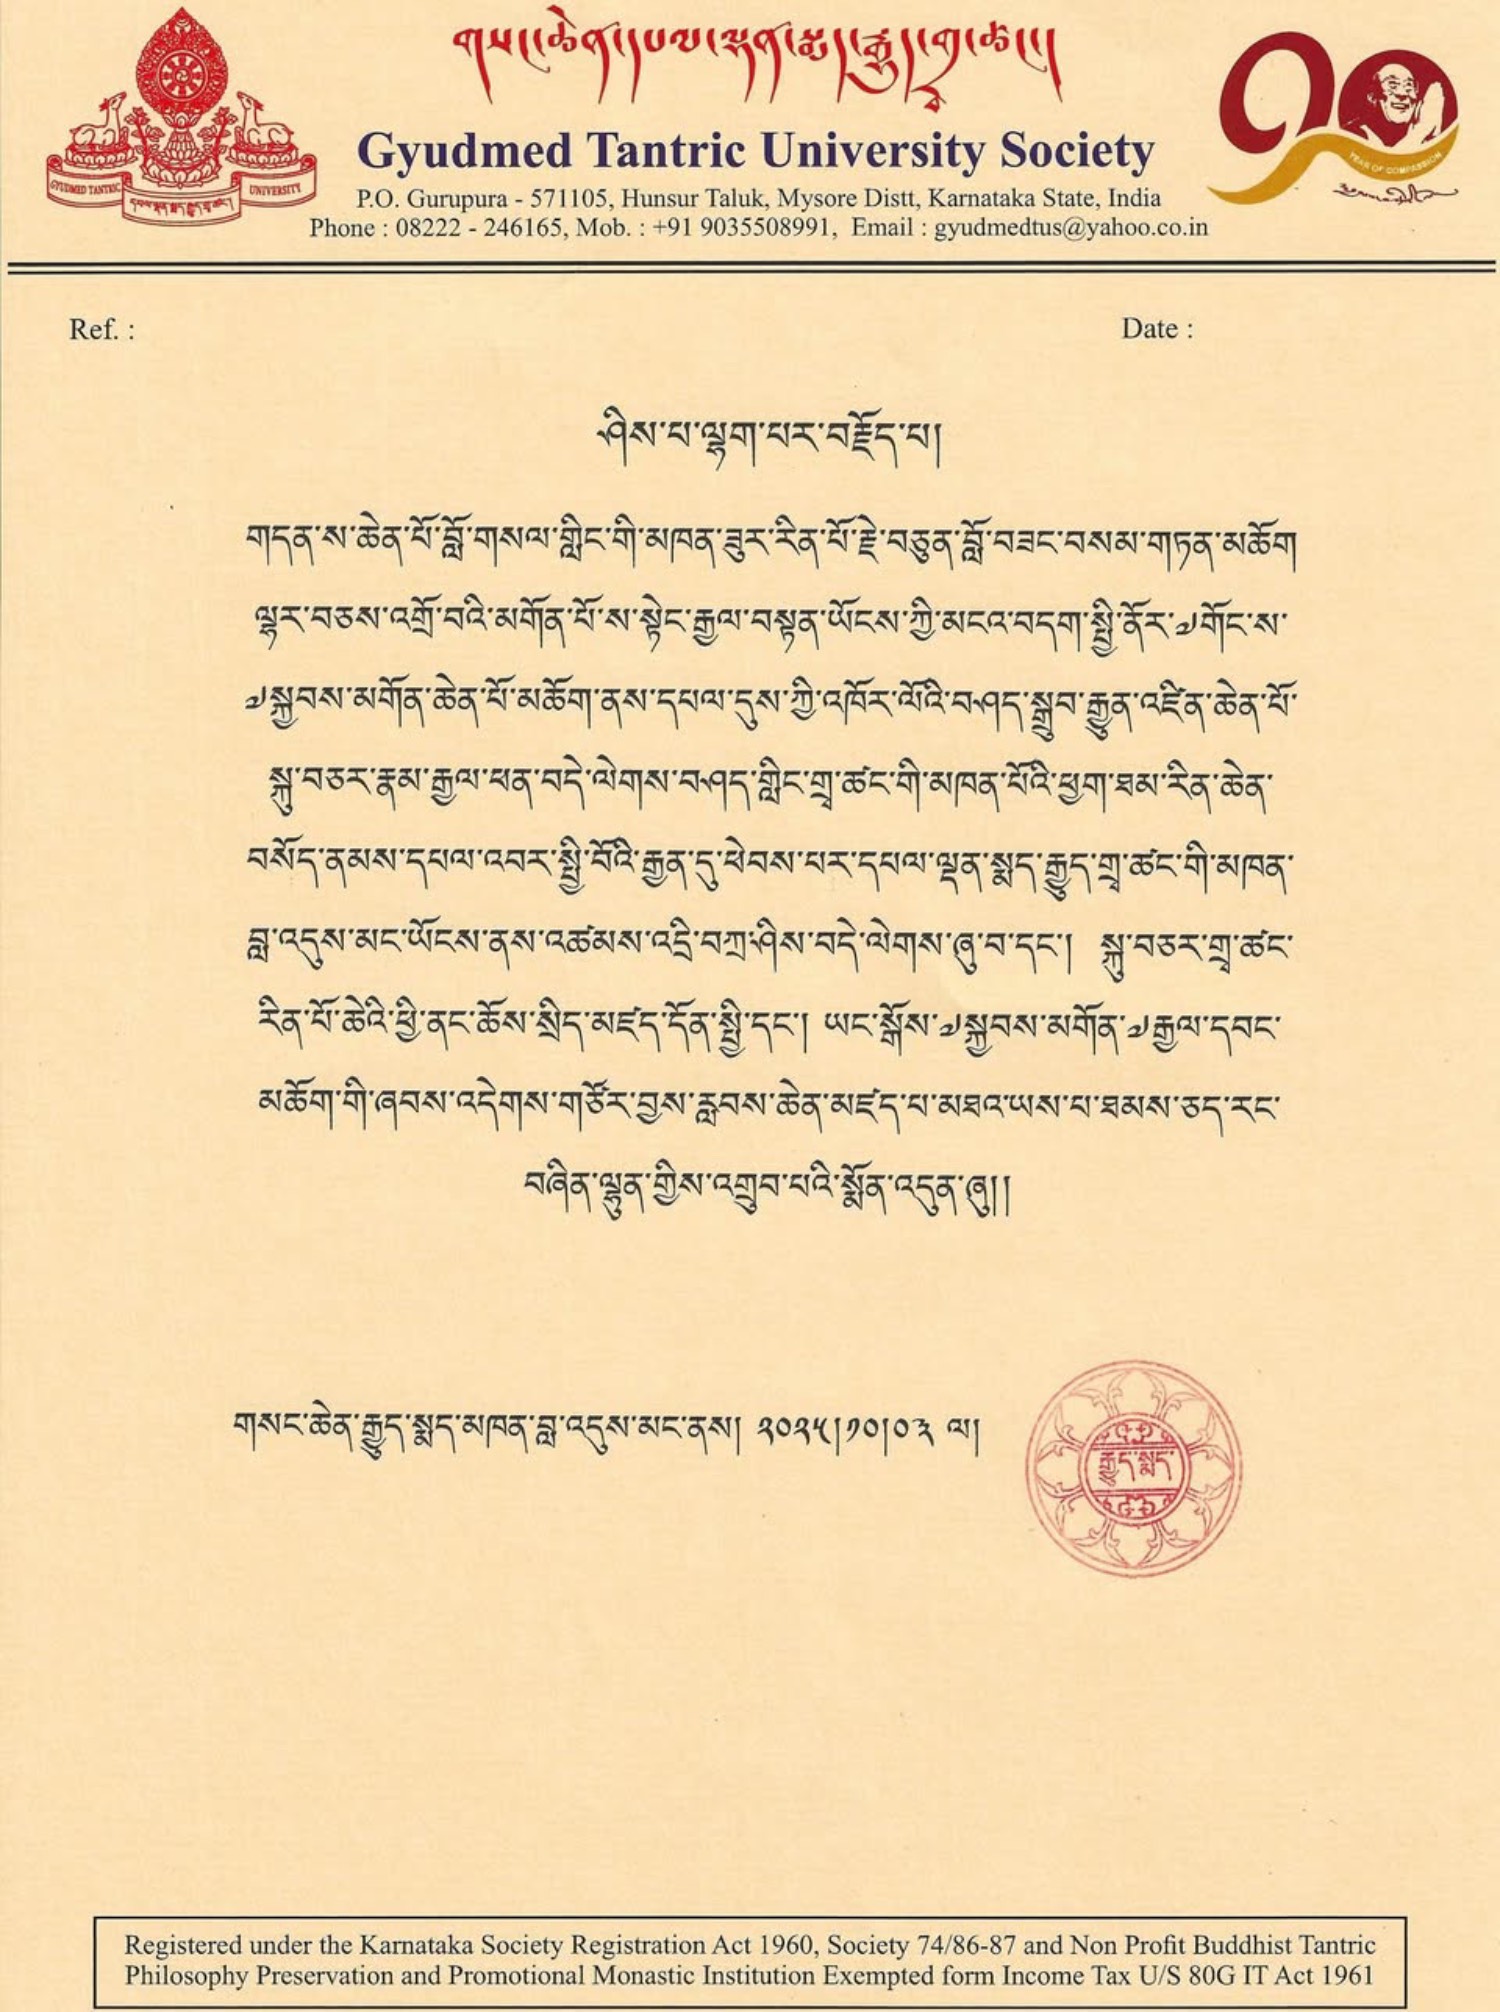 གསང་ཆེན་དཔལ་ལྡན་སྨད་རྒྱུད་གྲྭ་ཚང་།
Gyudmed Tantric University Society
P.O. Gurupura - 571105, Hunsur Taluk, Mysore Distt, Karnataka State, India
Phone : 08222 - 246165, Mob. : +91 9035508991, Email : gyudmedtus@yahoo.co.in
GYUDMED TANTRIC UNIVERSITY
YEAR OF COMPASSION
Ref. :
Date :
ཤིས་པ་ལྷག་པར་བརྗོད་པ།
གདན་ས་ཆེན་པོ་བློ་གསལ་གླིང་གི་མཁན་ཟུར་རིན་པོ་རྗེ་བཙུན་བློ་བཟང་བསམ་གཏན་མཆོག
ལྷར་བཅས་འགྲོ་བའི་མགོན་པོ་ས་སྟེང་རྒྱལ་བསྟན་ཡོངས་ཀྱི་མངའ་བདག་སྤྱི་ནོར་༧གོང་ས་
༧སྐྱབས་མགོན་ཆེན་པོ་མཆོག་ནས་དཔལ་དུས་ཀྱི་འཁོར་ལོའི་བཤད་སྒྲུབ་རྒྱུན་འཛིན་ཆེན་པོ་
སྐུ་བཅར་རྣམ་རྒྱལ་ཕན་བདེ་ལེགས་བཤད་གླིང་གྲྭ་ཚང་གི་མཁན་པོའི་ཕྱག་ཐམ་རིན་ཆེན་
བསོད་ནམས་དཔལ་འབར་སྤྱི་བོའི་རྒྱན་དུ་ཕེབས་པར་དཔལ་ལྡན་སྨད་རྒྱུད་གྲྭ་ཚང་གི་མཁན་
བླ་འདུས་མང་ཡོངས་ནས་འཚམས་འདྲི་བཀྲ་ཤིས་བདེ་ལེགས་ཞུ་བ་དང་། སྐུ་བཅར་གྲྭ་ཚང་
རིན་པོ་ཆེའི་ཕྱི་ནང་ཆོས་སྲིད་མཛད་དོན་སྤྱི་དང་། ཡང་སྒོས་༧སྐྱབས་མགོན་༧རྒྱལ་དབང་
མཆོག་གི་ཞབས་འདེགས་གཙོར་བྱས་རླབས་ཆེན་མཛད་པ་མཐའ་ཡས་པ་ཐམས་ཅད་རང་
བཞིན་ལྷུན་གྱིས་འགྲུབ་པའི་སྨོན་འདུན་ཞུ།།
གསང་ཆེན་རྒྱུད་སྨད་མཁན་བླ་འདུས་མང་ནས། ༢༠༢༥།༡༠།༠༣ ལ།
རྒྱུད་སྨད་
Registered under the Karnataka Society Registration Act 1960, Society 74/86-87 and Non Profit Buddhist Tantric
Philosophy Preservation and Promotional Monastic Institution Exempted form Income Tax U/S 80G IT Act 1961